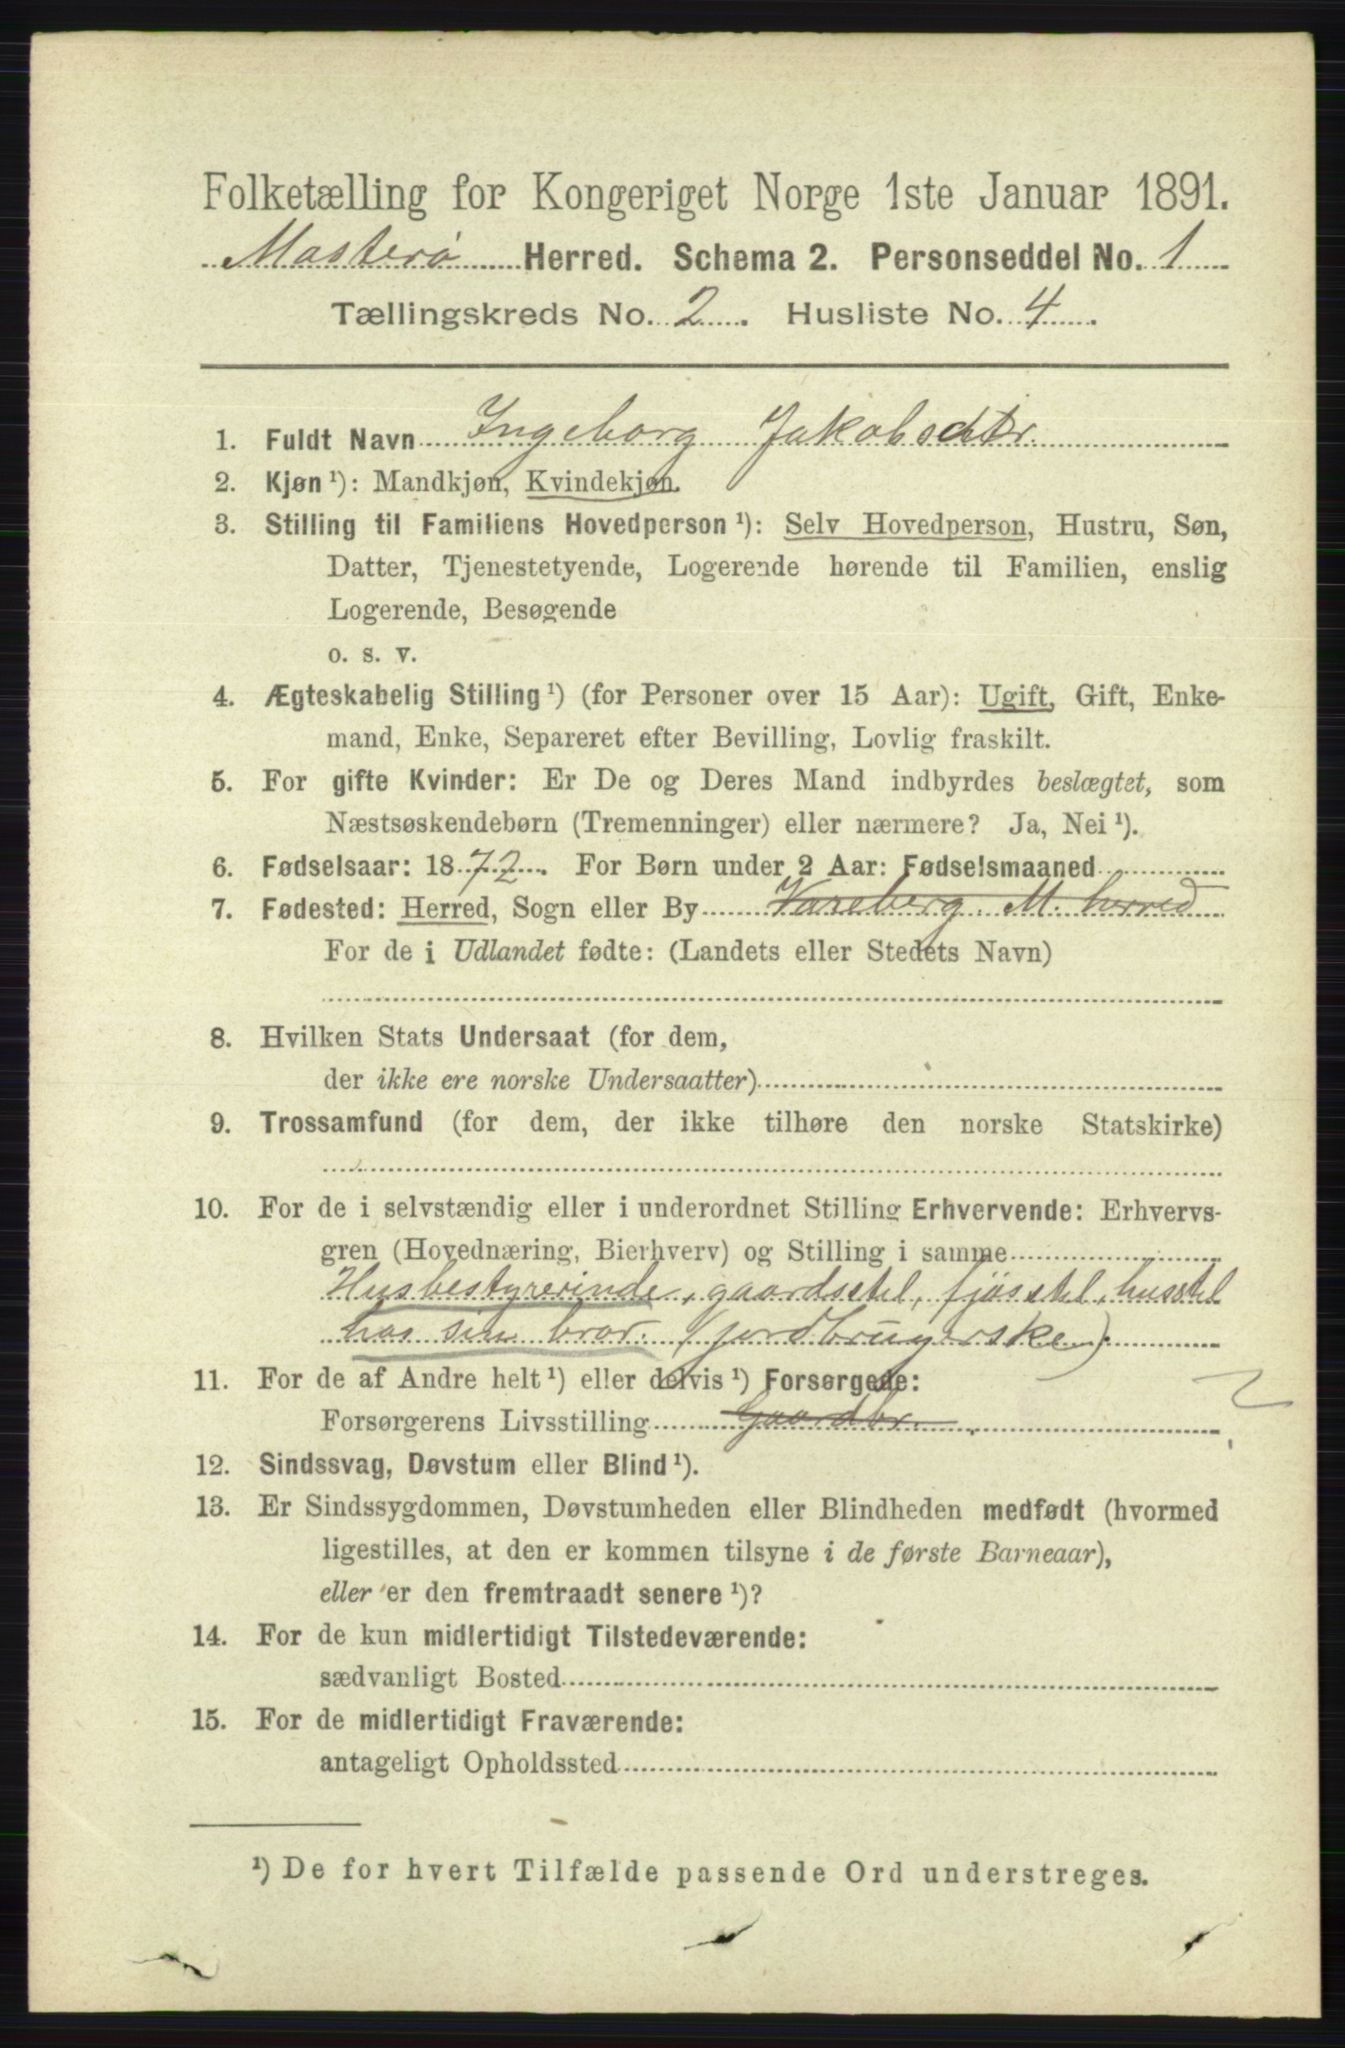 Folketælling for Kongeriget Norge 1ste Januar 1891.
Masterø Herred. Schema 2. Personseddel No. 1
Tællingskreds No. 2. Husliste No. 4.
1. Fuldt Navn Ingeborg Jakobsdtr.
2. Kjøn ¹): Mandkjøn, Kvindekjøn.
3. Stilling til Familiens Hovedperson ¹): Selv Hovedperson, Hustru, Søn,
Datter, Tjenestetyende, Logerende hørende til Familien, enslig
Logerende, Besøgende
o. s. v.
4. Ægteskabelig Stilling ¹) (for Personer over 15 Aar): Ugift, Gift, Enke-
mand, Enke, Separeret efter Bevilling, Lovlig fraskilt.
5. For gifte Kvinder: Er De og Deres Mand indbyrdes beslægtet, som
Næstsøskendebørn (Tremenninger) eller nærmere? Ja, Nei ¹).
6. Fødselsaar: 1872. For Børn under 2 Aar: Fødselsmaaned
7. Fødested: Herred, Sogn eller By Vareberg M. herred
For de i Udlandet fødte: (Landets eller Stedets Navn)
8. Hvilken Stats Undersaat (for dem,
der ikke ere norske Undersaatter)
9. Trossamfund (for dem, der ikke tilhøre den norske Statskirke)
10. For de i selvstændig eller i underordnet Stilling Erhvervende: Erhvervs-
gren (Hovednæring, Bierhverv) og Stilling i samme
Husbestyrerinde, gaardsstel, fjøsstel, husstel
hos sin bror. (jordbrugerske).
11. For de af Andre helt ¹) eller delvis ¹) Forsørgede:
Forsørgerens Livsstilling Gaardbr.
12. Sindssvag, Døvstum eller Blind ¹).
13. Er Sindssygdommen, Døvstumheden eller Blindheden medfødt (hvormed
ligestilles, at den er kommen tilsyne i de første Barneaar),
eller er den fremtraadt senere ¹)?
14. For de kun midlertidigt Tilstedeværende:
sædvanligt Bosted
15. For de midlertidigt Fraværende:
antageligt Opholdssted
¹) De for hvert Tilfælde passende Ord understreges.